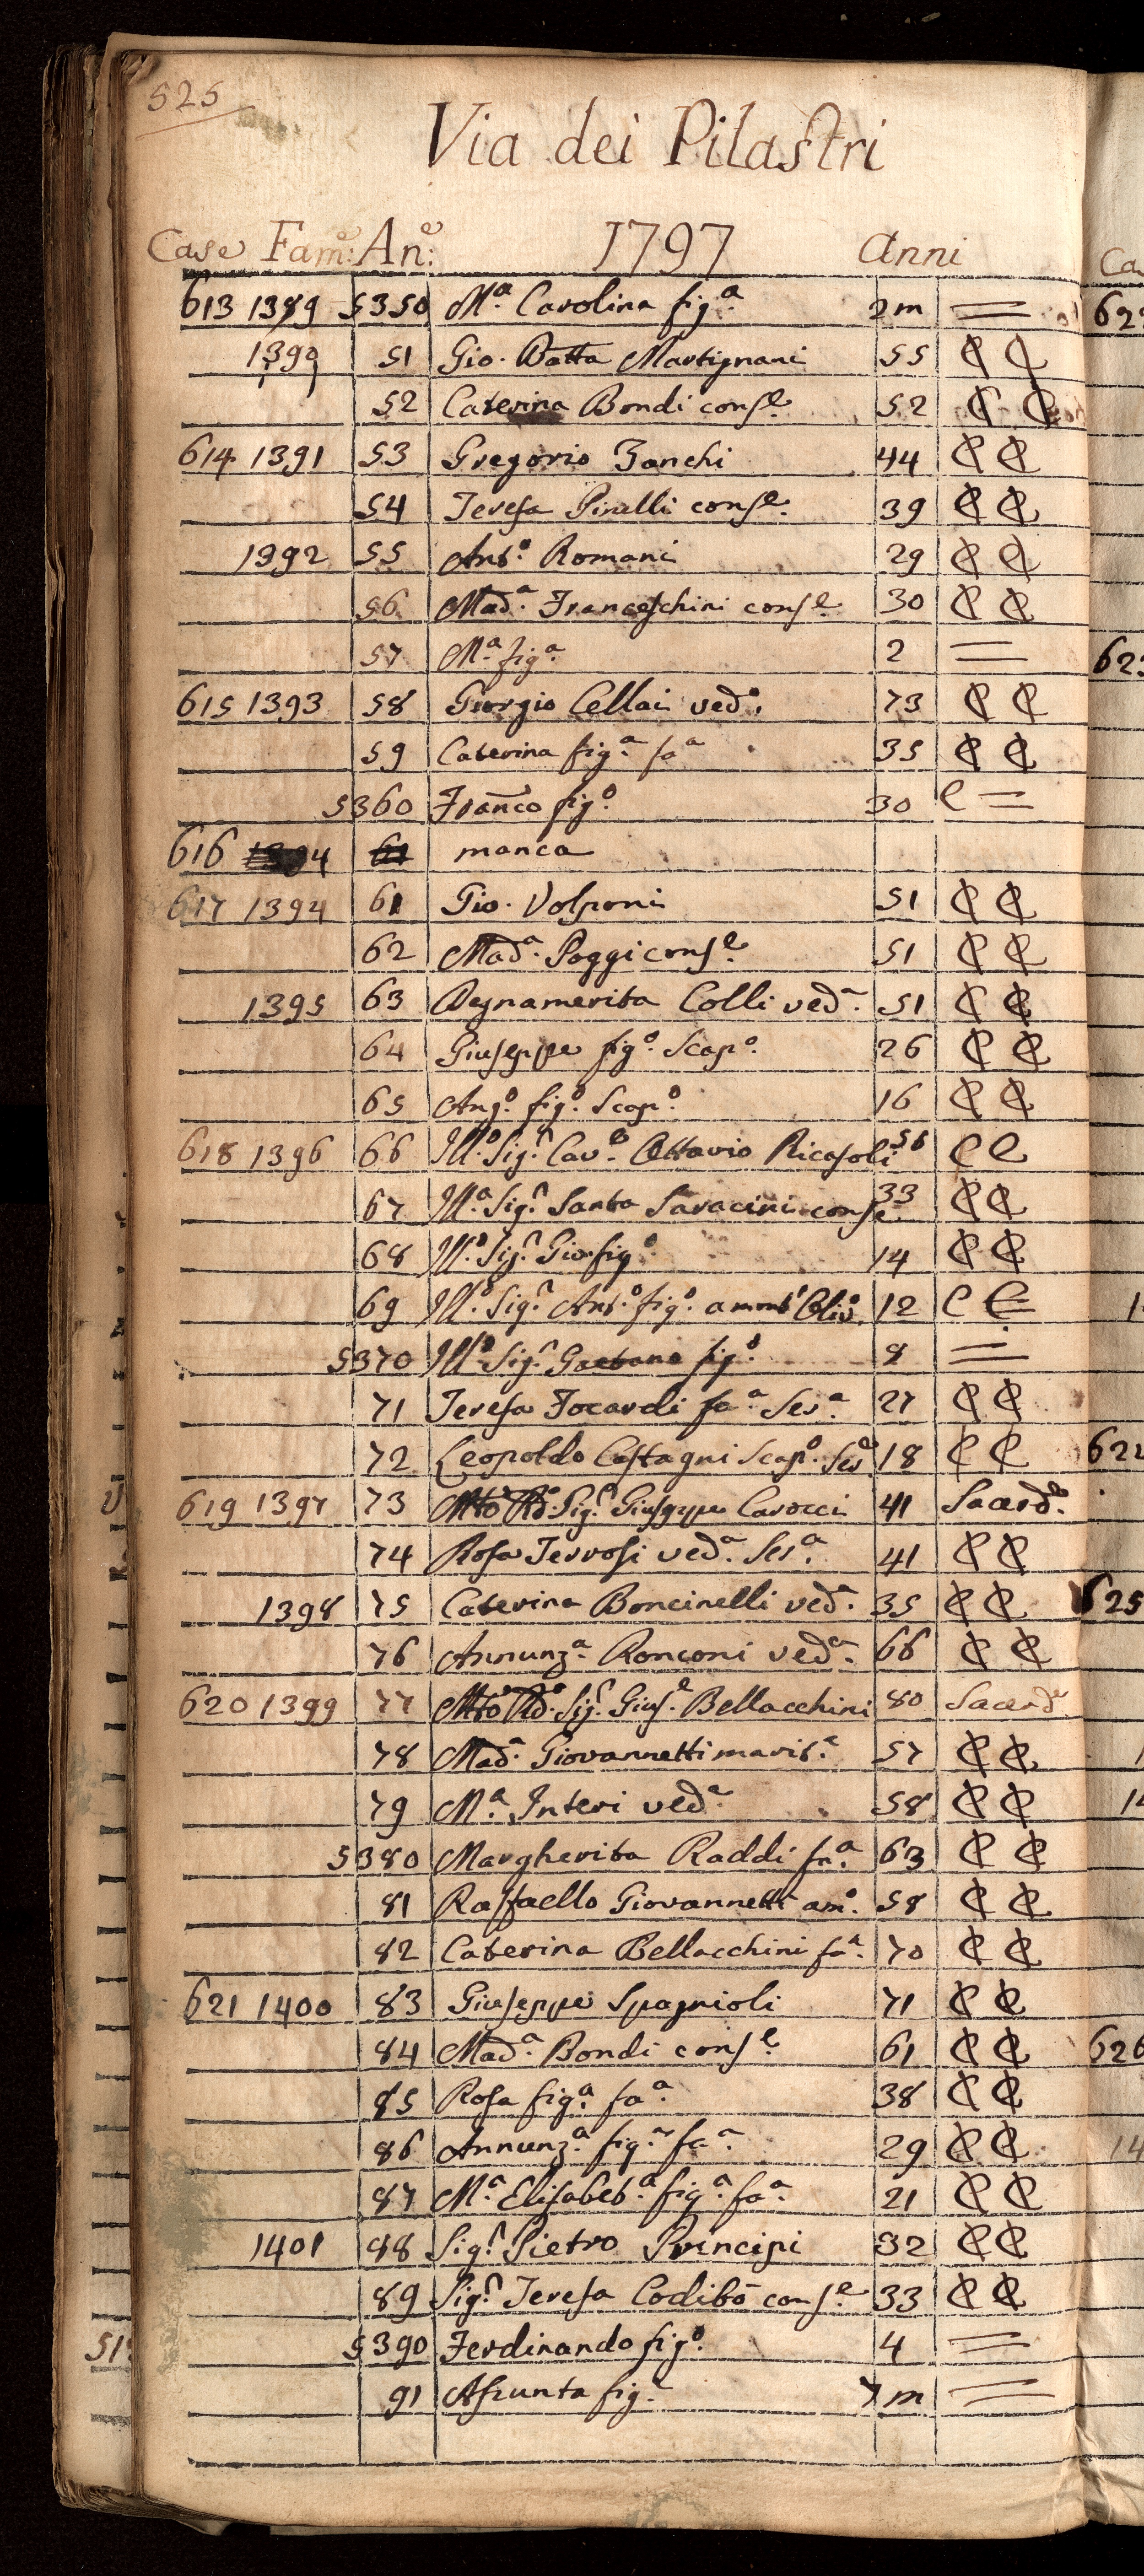 525
Via dei Pilastri
Case Fam.e: An.e: 1797 Anni
613 1389 5350 M.a Carolina fig.a 2m =
1390 51 Gio. Batta Martignani 55 C C
52 Caterina Bondi cons.e 52 C C
614 1391 53 Gregorio Zanchi 44 C C
54 Teresa Pinelli cons.e 39 C C
1392 55 Ant.o Romani 29 C C
56 Mad.a Franceschini cons.e 30 C C
57 M.a fig.a 2 =
615 1393 58 Giorgio Cellai ved.o 73 C C
59 Caterina fig.a fa.a 35 C C
5360 Franco fig.o 30 C =
616 manca
617 1394 61 Gio. Volponi 51 C C
62 Mad.a Poggi cons.e 51 C C
1395 63 Degnamerita Colli ved.a 51 C C
64 Giuseppe fig.o Scap.o 26 C C
65 Ang.o fig.o Scap.o 16 C C
618 1396 66 Ill.o Sig.r Cav.e Ottavio Ricasoli 56 C C
67 Ill.a Sig.r Santa Saracini conse. 33 C C
68 Ill.o Sig.r Gio. fig.o 14 C C
69 Ill.o Sig.r Ant.o fig.o a mont' Oliv.o 12 C C =
5370 Ill.o Sig.r Gaetano fig.o 8 =
71 Teresa Focardi fa.a Ser.a 27 C C
72 Leopoldo Castagni Scap.o Ser.e 18 C C
619 1397 73 Mto Rdo. Sig.r Giuseppe Carocci 41 Sacerd.e
74 Rosa Terrosi ved.a Ser.a 41 C C
1398 75 Caterina Boncinelli ved.a 35 C C
76 Annunz.a Ronconi ved.a 66 C C
620 1399 77 Mto Rdo. Sig.r Gius.e Bellacchini 80 Sacerd.e
78 Mad.a Giovannetti marit.a 57 C C
79 M.a Interi ved.a 58 C C
5380 Margherita Raddi fa.a 63 C C
81 Raffaello Giovannetti am.o 58 C C
82 Caterina Bellacchini fa.a 70 C C
621 1400 83 Giuseppe Spagnioli 71 C C
84 Mad.a Bondi cons.e 61 C C
85 Rosa fig.a fa.a 38 C C
86 Annunz.a fig.a fa.a 29 C C
87 M.a Elisabet.a fig.a fa.a 21 C C
1401 88 Sig.r Pietro Principi 32 C C
89 Sig.r Teresa Codibò cons.e 33 C C
5390 Ferdinando fig.o 4 =
91 Assunta fig.a 7m =